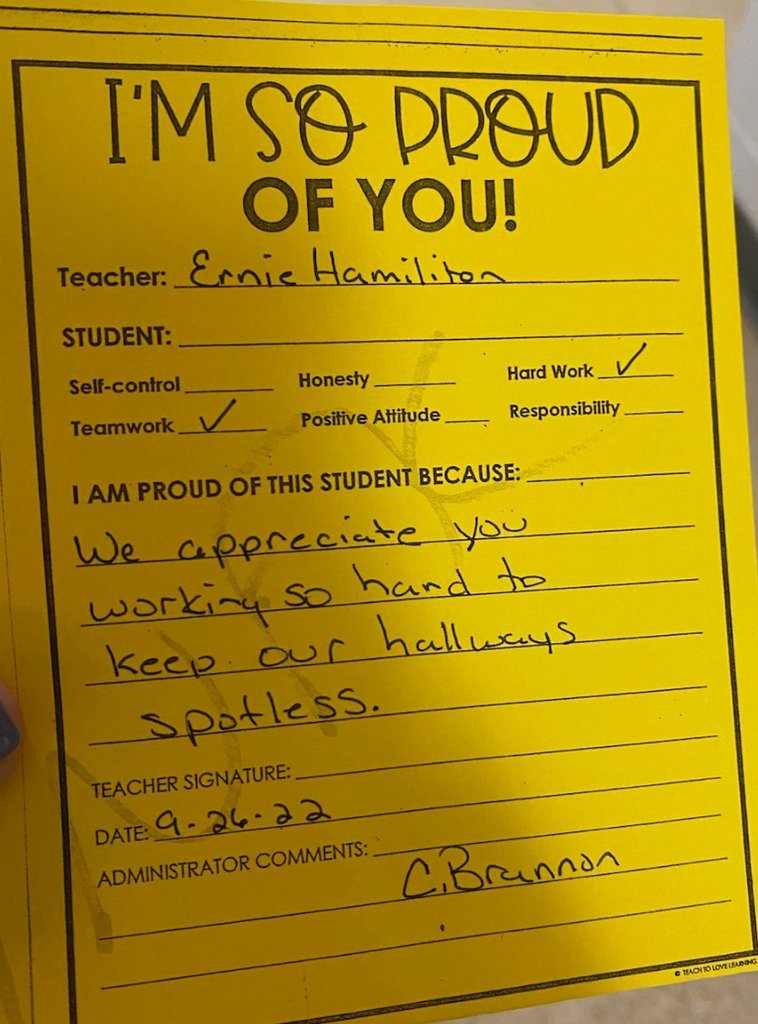 I'M SO PROUD
OF YOU!
Teacher: Ernie Hamiliton
STUDENT:
Self-control Honesty Hard Work ✓
Teamwork ✓ Positive Attitude Responsibility
I AM PROUD OF THIS STUDENT BECAUSE:
We appreciate you
working so hard to
keep our hallways
spotless.
TEACHER SIGNATURE:
DATE: 9-26-22
ADMINISTRATOR COMMENTS:
C. Brannon
© TEACH TO LOVE LEARNING